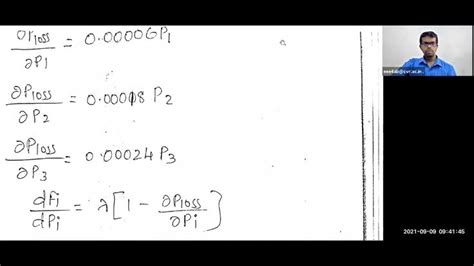 ∂Ploss/∂P1 = 0.00006P1
∂Ploss/∂P2 = 0.00018 P2
∂Ploss/∂P3 = 0.00024 P3
dFi/dPi = λ[1 - ∂Ploss/∂Pi]
2021-09-09 09:41:45